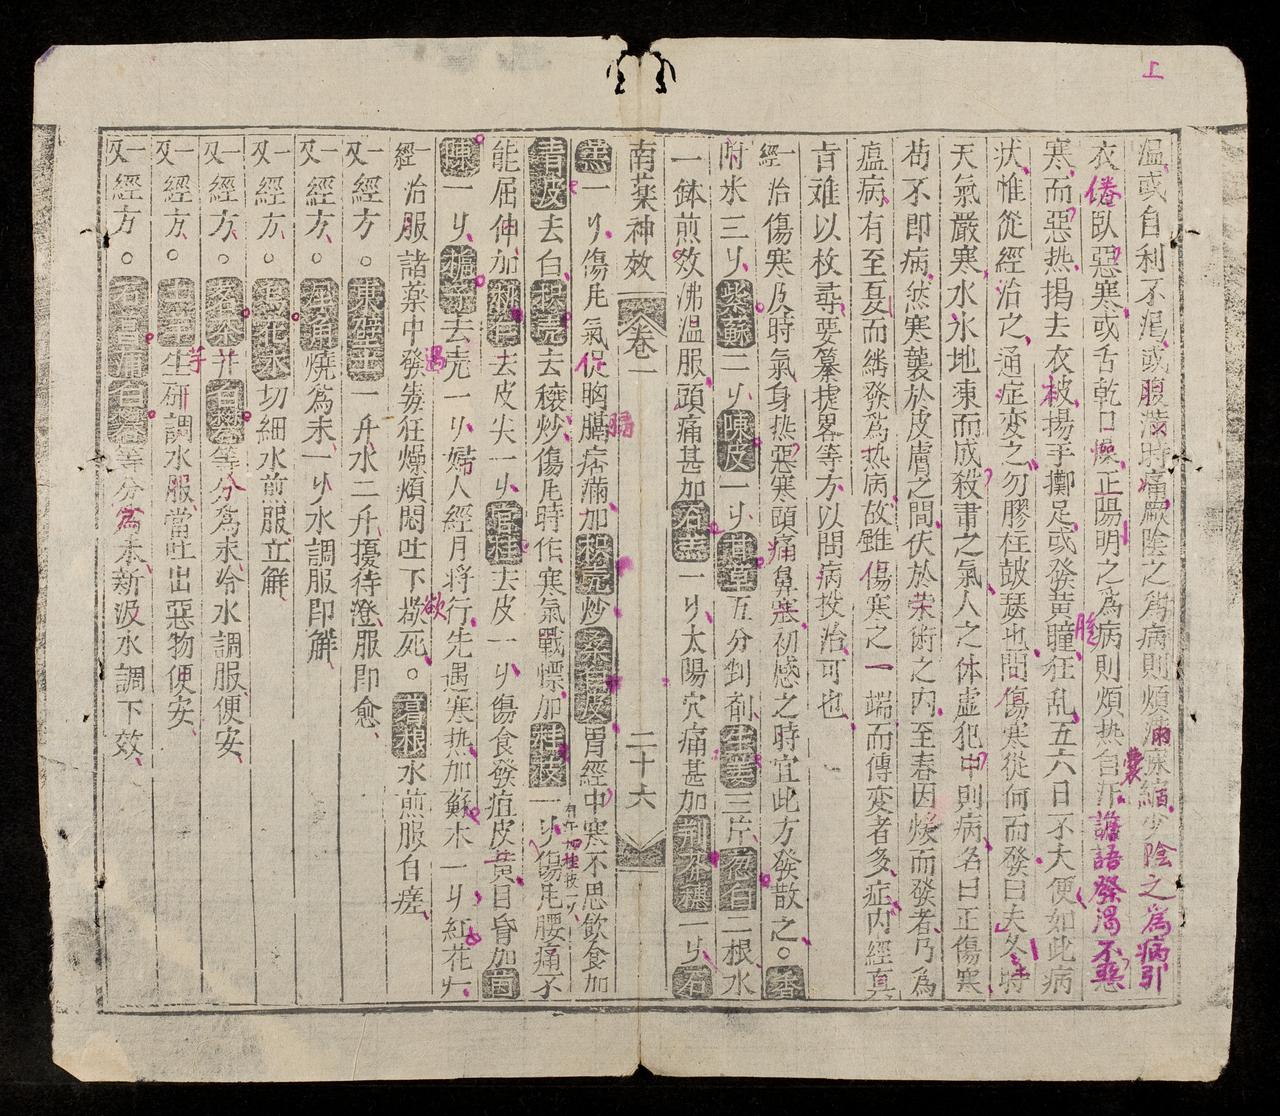 上
溫或自利不渴或腹滿時痛厥陰之爲病則煩滿囊縮少陰之爲病引
衣倦臥惡寒或舌乾口燥正陽明之爲病則煩熱自汗譫語發渴不惡
寒而惡热揭去衣被揚手擲足或發黃瞳狂乱五六日不大便如此病
状惟從經治之通症変之勿膠柱鼓瑟也問傷寒從何而發曰夫冬時
天氣嚴寒水氷地凍而成殺肅之氣人之体虛犯中則病名曰正傷寒
苟不即病然寒襲於皮膚之間伏於荣術之內至春因煖而發者乃為
瘟病有至夏而綿發為热病故雖傷寒之一端而傳変者多症內經真
肯难以枚尋要纂㨗畧等方以問病投治可也
一經治傷寒及時氣身热惡寒頭痛鼻塞初感之時宜此方發散之。香
附米三𠦳紫蘇二𠦳陳皮一𠦳甘草五分剉剂生姜三片葱白二根水
一鉢煎数沸温服頭痛甚加石羔一𠦳太陽穴痛甚加荆芥穗一𠦳石
南藥神效 卷一 二十六
羔一𠦳傷𠂢氣促胸膈痞滿加枳壳炒桑白皮胃經中寒不思飲食加
青皮去白枳壳去穰炒傷𠂢時作寒氣戰慄加桂枝一𠦳傷𠂢腰痛不
能屈伸加桃仁去皮尖一𠦳官桂去皮一𠦳傷食發疸皮黃目昏加茵
陳一𠦳梔子去壳一𠦳婦人經月将行先遇寒热加蘇木一𠦳紅花七
一經治服諸薬中發毒狂燥煩悶吐下欲死。葛根水煎服自瘥
一又經方。東壁土一升水二升擾待澄服即愈
一又經方。犀角燒為末一𠦳水調服即鮮
一又經方。切細水煎服立鮮
一又經方。并白礬等分為末冷水調服便安
一又經方。生研調水服當吐出惡物便安
一又經方。石菖蒲白礬等分為末新汲水調下效